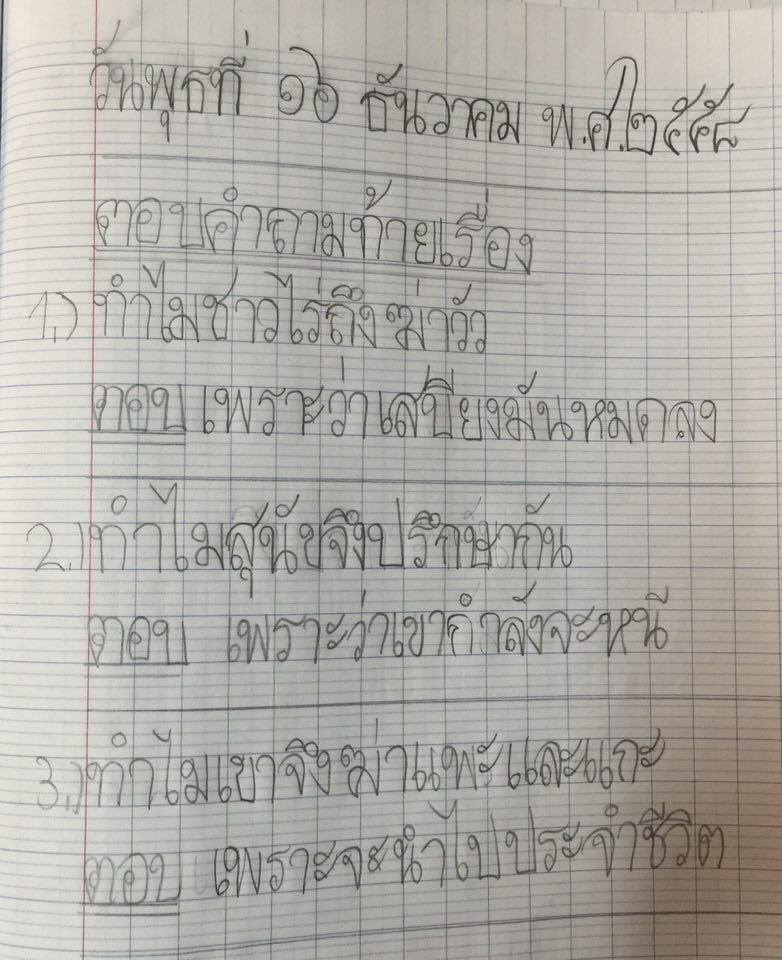 วันพุธที่ ๑๖ ธันวาคม พ.ศ.๒๕๕๘
ตอบคำถามท้ายเรื่อง
1.) ทำไมชาวไร่ถึงฆ่าวัว
ตอบ เพราะว่าเสบียงมันหมดลง
2.) ทำไมสุนัขจึงปรึกษากัน
ตอบ เพราะว่าเขากำลังจะหนี
3.) ทำไมเขาจึงฆ่าแพะและแกะ
ตอบ เพราะจะนำไปประจำชีวิต